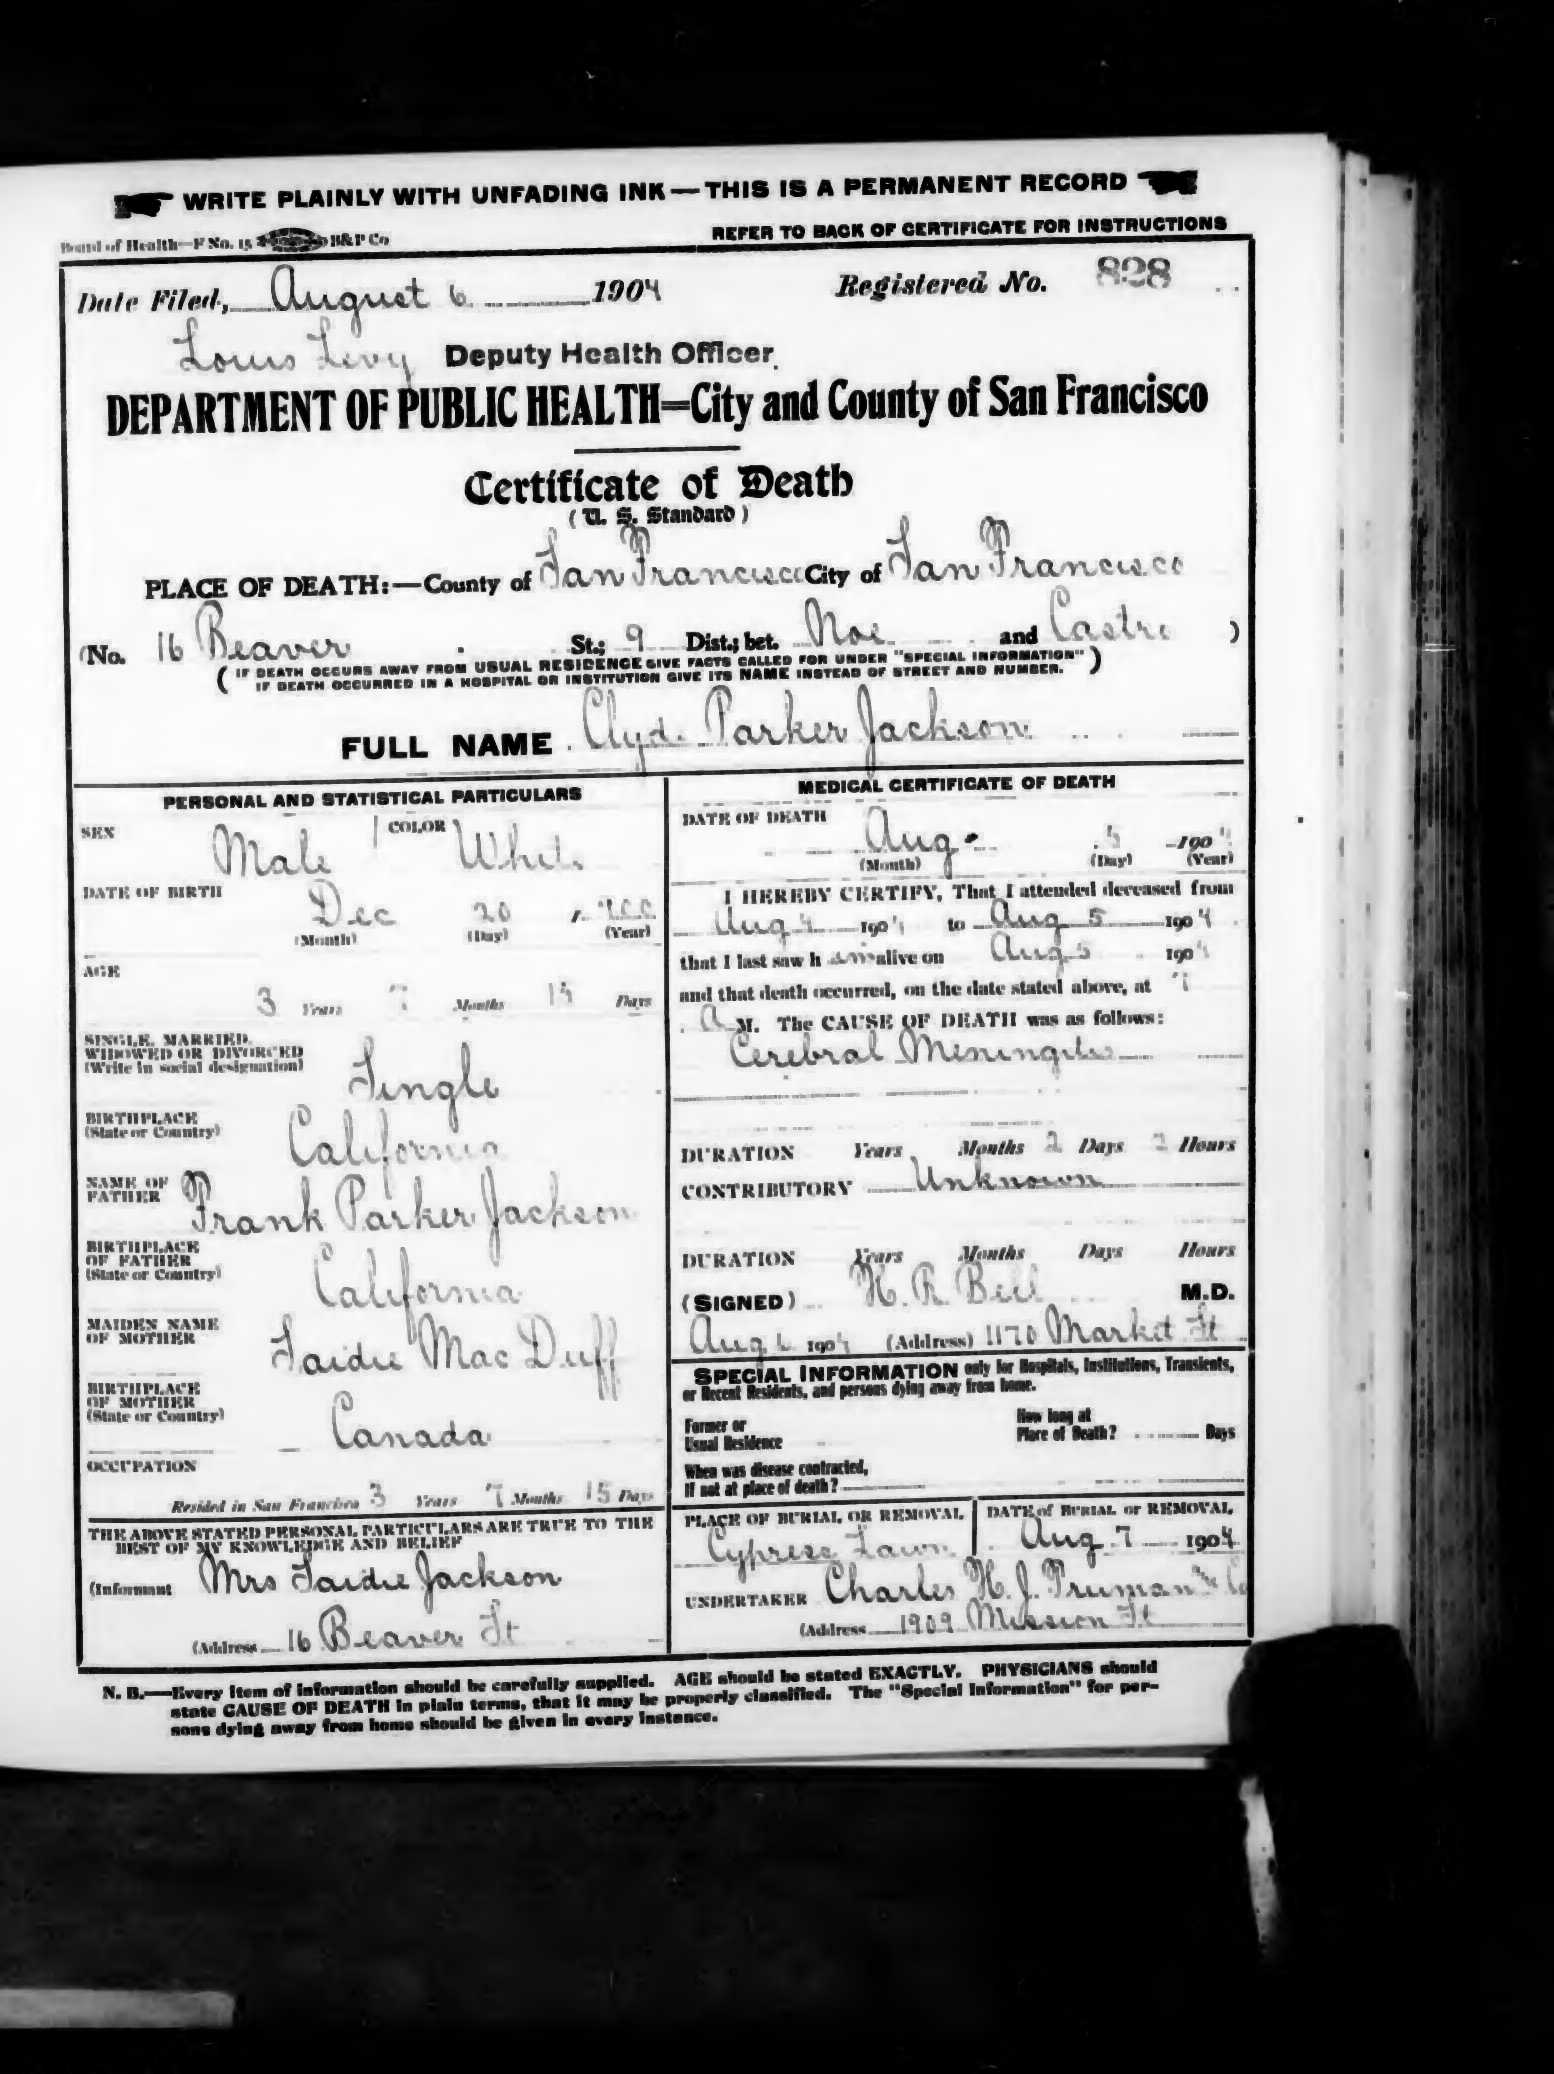 WRITE PLAINLY WITH UNFADING INK — THIS IS A PERMANENT RECORD
Board of Health—F No. 15 B&P Co
REFER TO BACK OF CERTIFICATE FOR INSTRUCTIONS
Date Filed, August 6 1904 Registered No. 828
Louis Levy Deputy Health Officer.
DEPARTMENT OF PUBLIC HEALTH=City and County of San Francisco
Certificate of Death
(U. S. Standard)
PLACE OF DEATH:—County of San Francisco City of San Francisco
(No. 16 Beaver St.; 9 Dist.; bet. Noe and Castro )
( IF DEATH OCCURS AWAY FROM USUAL RESIDENCE GIVE FACTS CALLED FOR UNDER "SPECIAL INFORMATION" )
IF DEATH OCCURRED IN A HOSPITAL OR INSTITUTION GIVE ITS NAME INSTEAD OF STREET AND NUMBER.
FULL NAME Clyde Parker Jackson
PERSONAL AND STATISTICAL PARTICULARS
SEX Male COLOR White
DATE OF BIRTH
Dec 20 1900
(Month) (Day) (Year)
AGE
3 Years 7 Months 15 Days
SINGLE, MARRIED,
WIDOWED OR DIVORCED
(Write in social designation)
Single
BIRTHPLACE
(State or Country)
California
NAME OF
FATHER
Frank Parker Jackson
BIRTHPLACE
OF FATHER
(State or Country)
California
MAIDEN NAME
OF MOTHER
Saidie Mac Duff
BIRTHPLACE
OF MOTHER
(State or Country)
Canada
OCCUPATION
Resided in San Francisco 3 Years 7 Months 15 Days
THE ABOVE STATED PERSONAL PARTICULARS ARE TRUE TO THE
BEST OF MY KNOWLEDGE AND BELIEF
(Informant Mrs Saidie Jackson
(Address 16 Beaver St
MEDICAL CERTIFICATE OF DEATH
DATE OF DEATH
Aug. 5 1904
(Month) (Day) (Year)
I HEREBY CERTIFY, That I attended deceased from
Aug 4 1904 to Aug 5 1904
that I last saw him alive on Aug 5 1904
and that death occurred, on the date stated above, at 7
A M. The CAUSE OF DEATH was as follows:
Cerebral Meningitis
DURATION Years Months 2 Days 2 Hours
CONTRIBUTORY Unknown
DURATION Years Months Days Hours
(SIGNED) H. R. Bell M.D.
Aug 6 1904 (Address) 1170 Market St
SPECIAL INFORMATION only for Hospitals, Institutions, Transients,
or Recent Residents, and persons dying away from home.
Former or
Usual Residence
How long at
Place of Death? Days
When was disease contracted,
If not at place of death?
PLACE OF BURIAL OR REMOVAL
Cypress Lawn
DATE of BURIAL or REMOVAL
Aug 7 1904
UNDERTAKER Charles H. J. Truman & Co
(Address 1909 Mission St
N. B.—Every item of information should be carefully supplied. AGE should be stated EXACTLY. PHYSICIANS should
state CAUSE OF DEATH in plain terms, that it may be properly classified. The "Special Information" for per-
sons dying away from home should be given in every instance.